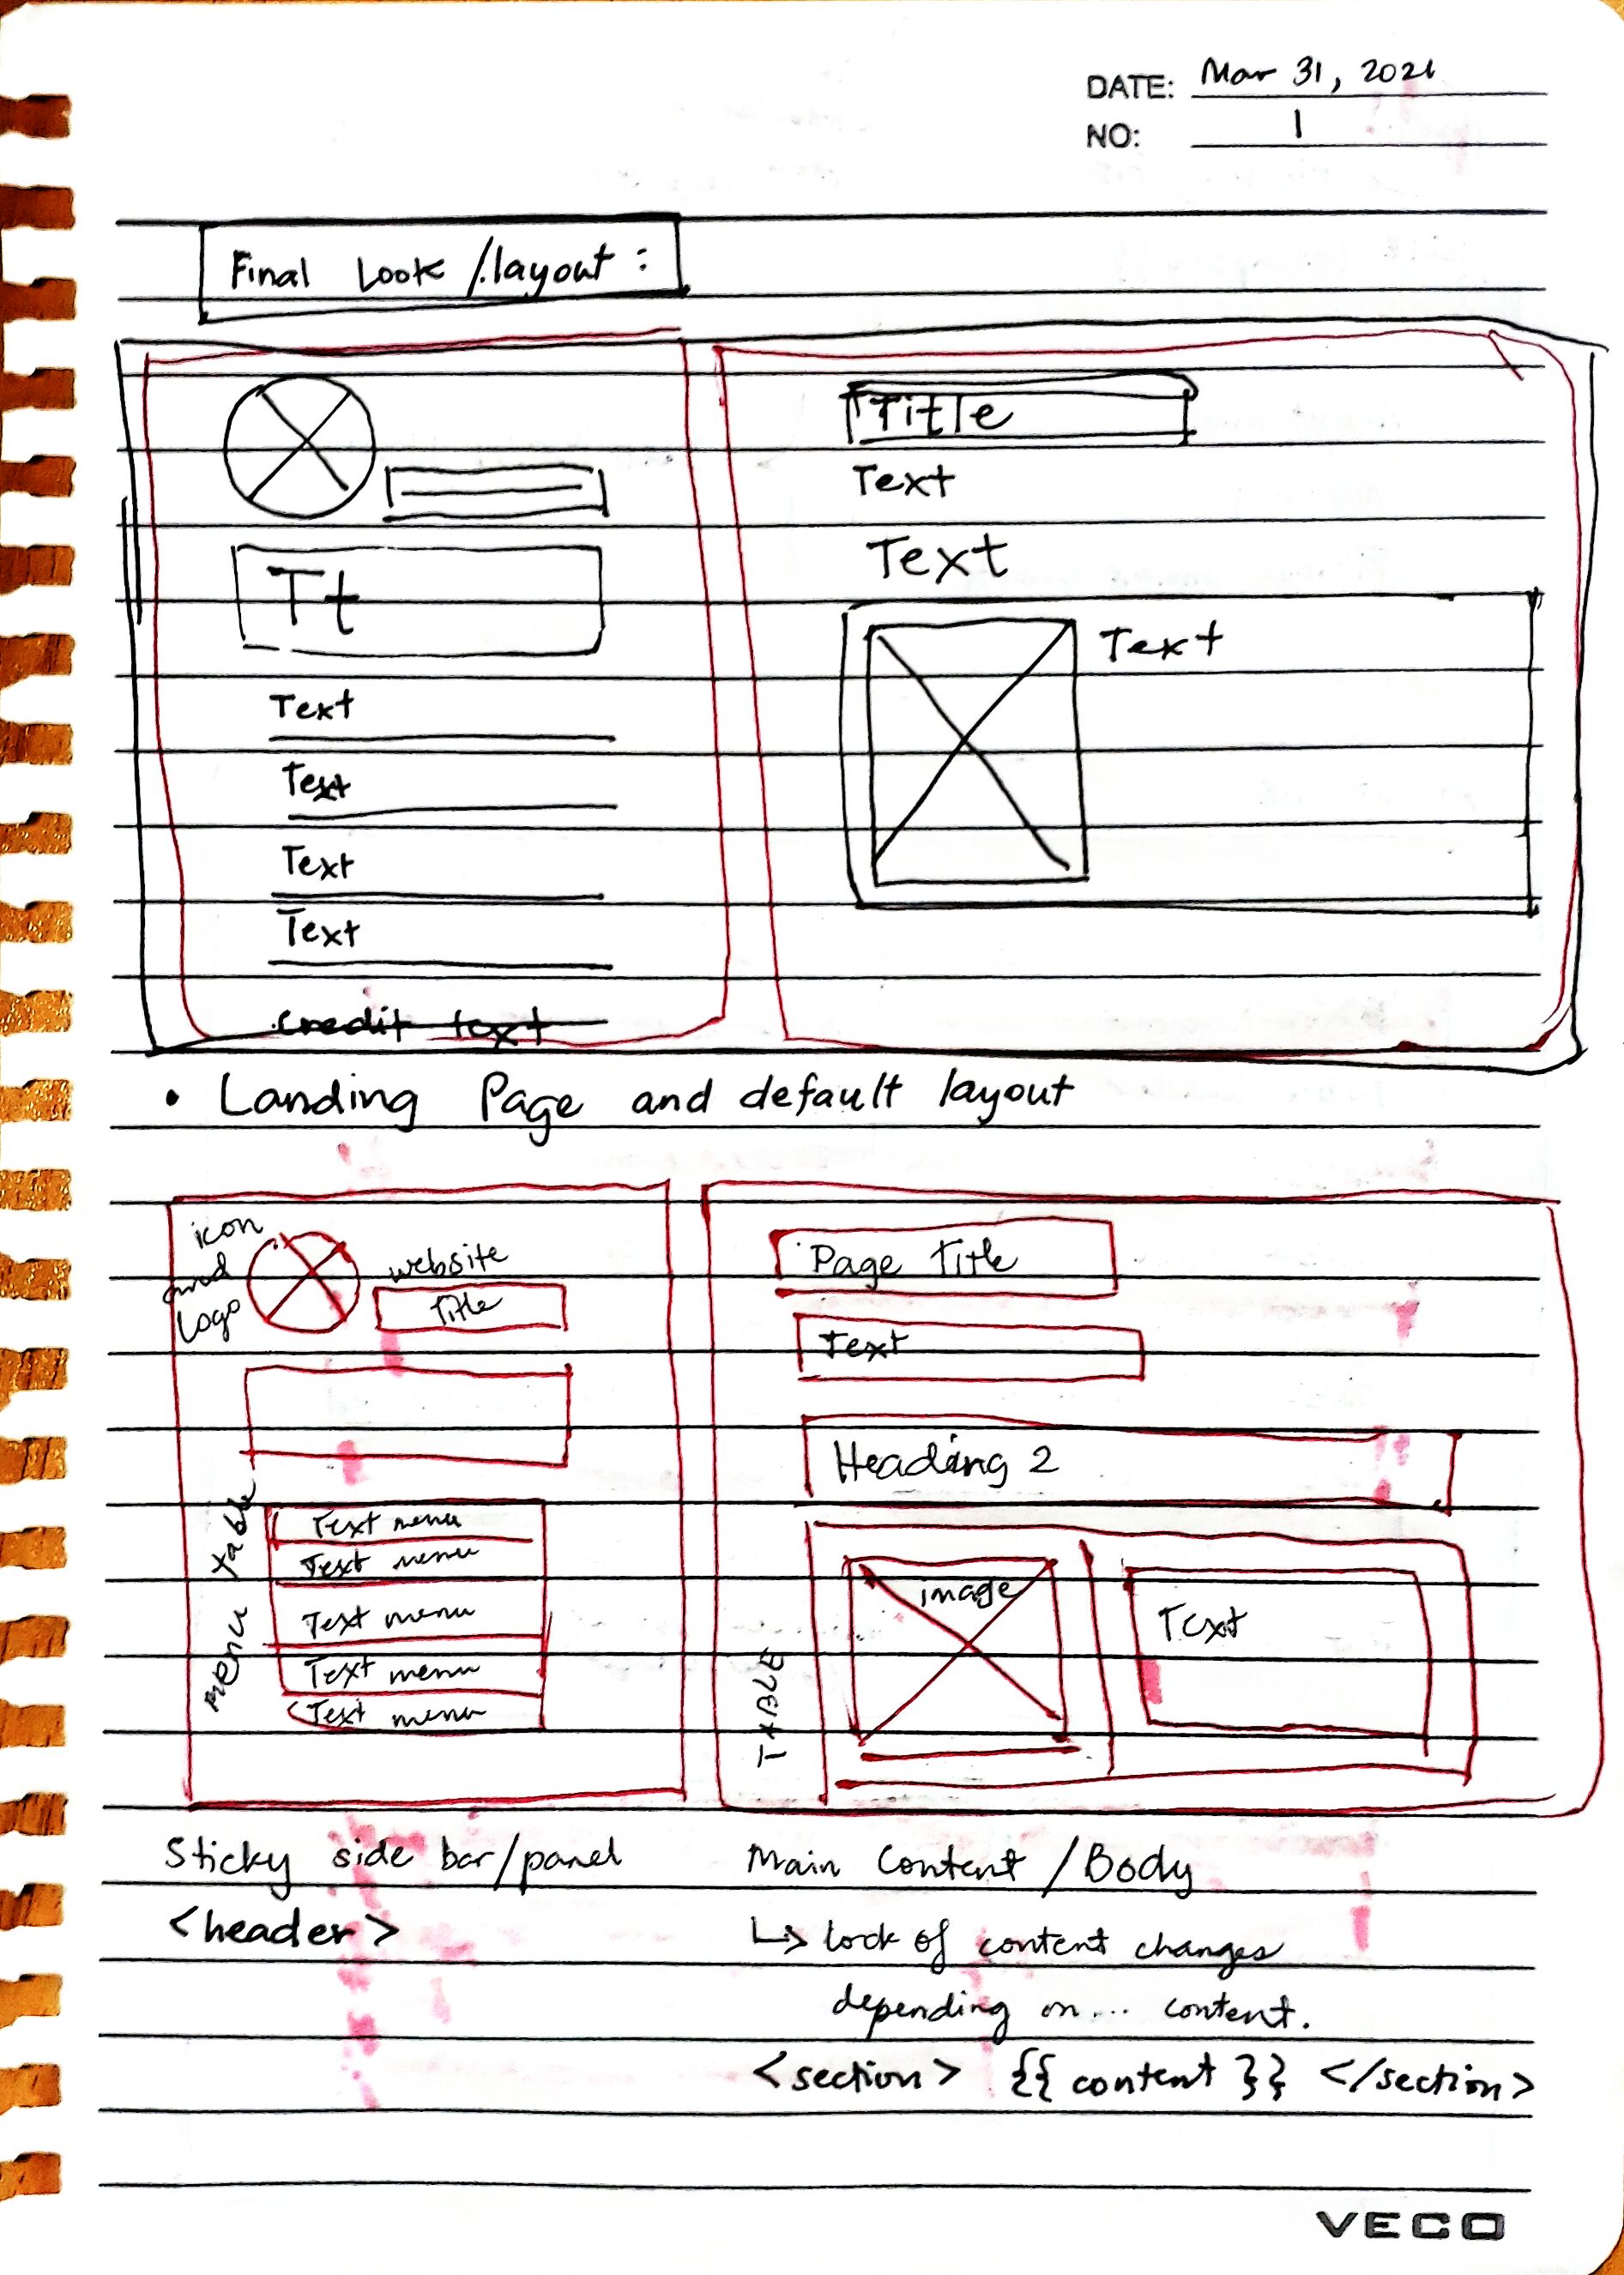 DATE: Mar 31, 2021
NO: 1
Final Look / layout :
Title
Text
Text
Tt
Text
Text
Text
Text
Text
credit text
• Landing Page and default layout
icon and Logo
website
Title
Page Title
Text
Heading 2
menu table
Text menu
Text menu
Text menu
Text menu
Text menu
TABLE
image
Text
Sticky side bar/panel
<header>
Main Content / Body
↳ lock of content changes
depending on... content.
<section> {{ content }} </section>
VECO